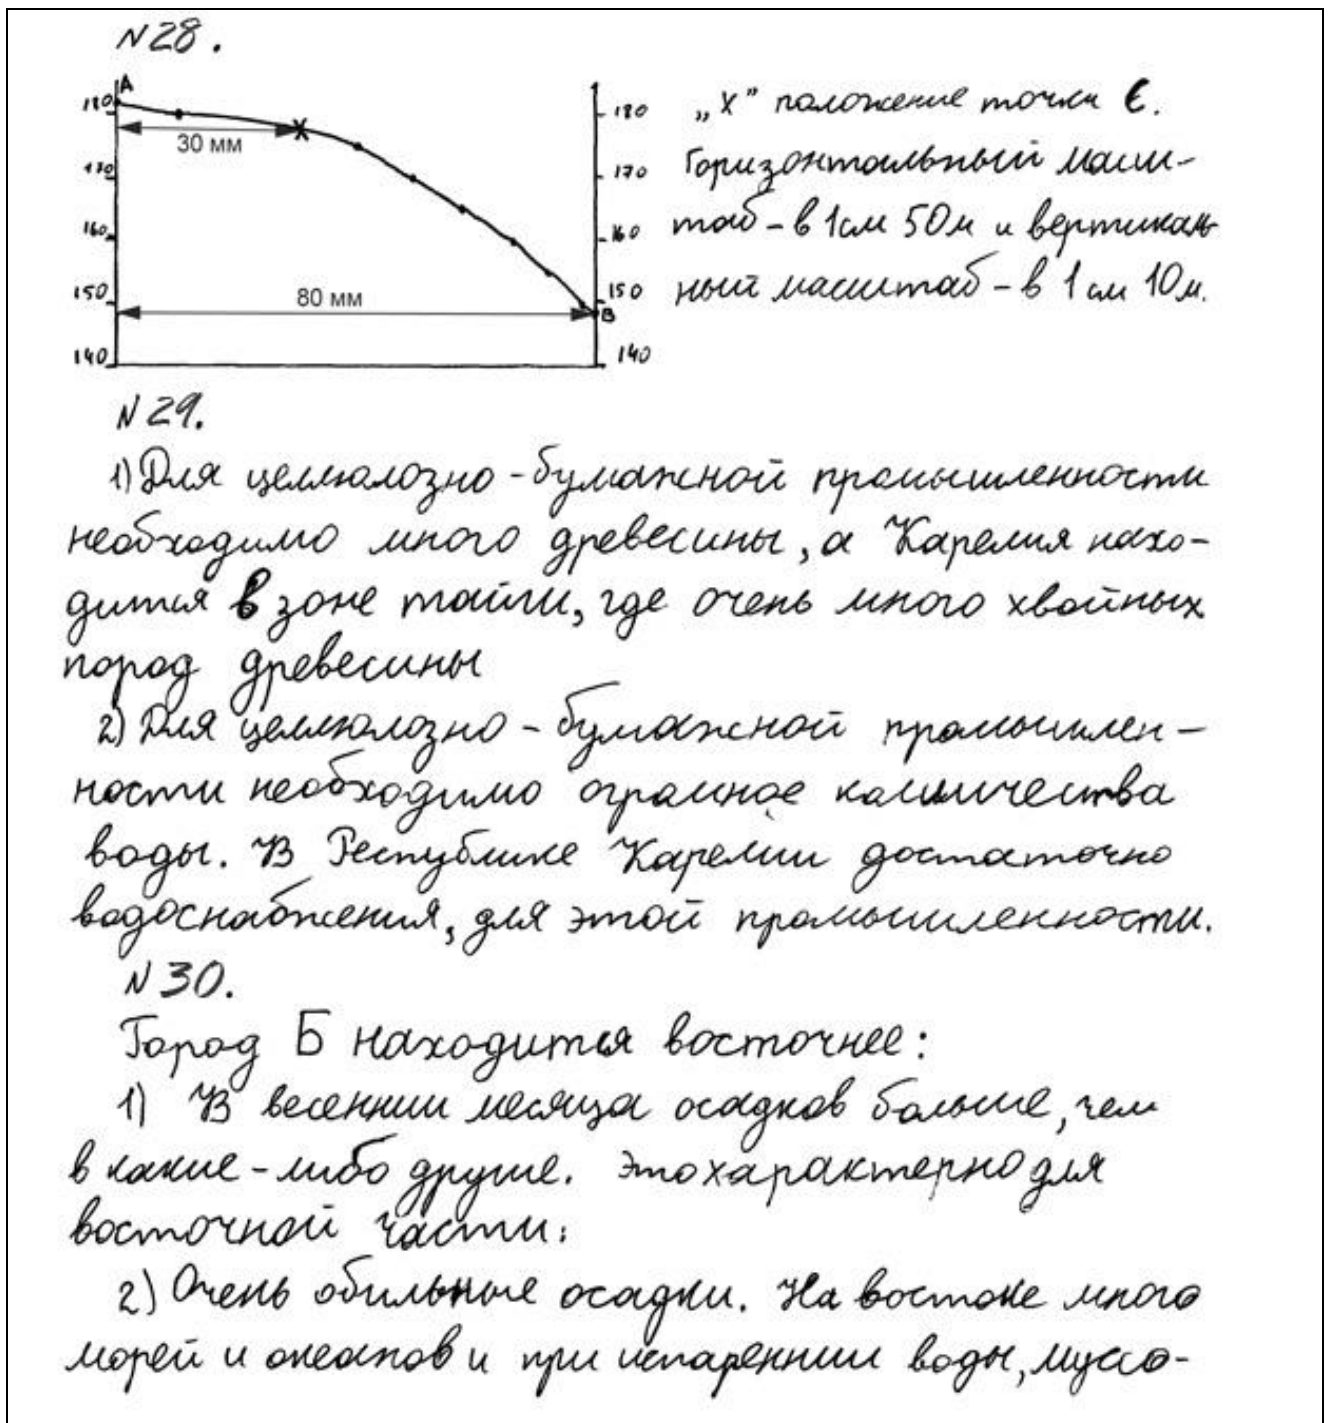 N28.
А
180
30 мм
170
160
150
80 мм
140
180
170
160
150
В
140
„х” положение точки Є.
Горизонтальный масш-
таб - в 1см 50м и вертикаль
ный масштаб - в 1 см 10м.
N 29.
1) Для целлюлозно-бумажной промышленности
необходимо много древесины, а Карелия нахо-
дится в зоне тайги, где очень много хвойных
пород древесины
2) Для целлюлозно-бумажной промышлен-
ности необходимо огромное количества
воды. В Республике Карелии достаточно
водоснабжения, для этой промышленности.
N 30.
Город Б находится восточнее:
1) В весеннии месяца осадков больше, чем
в какие-либо другие. Это характерно для
восточной части.
2) Очень обильные осадки. На востоке много
морей и океанов и при испареннии воды, муссо-